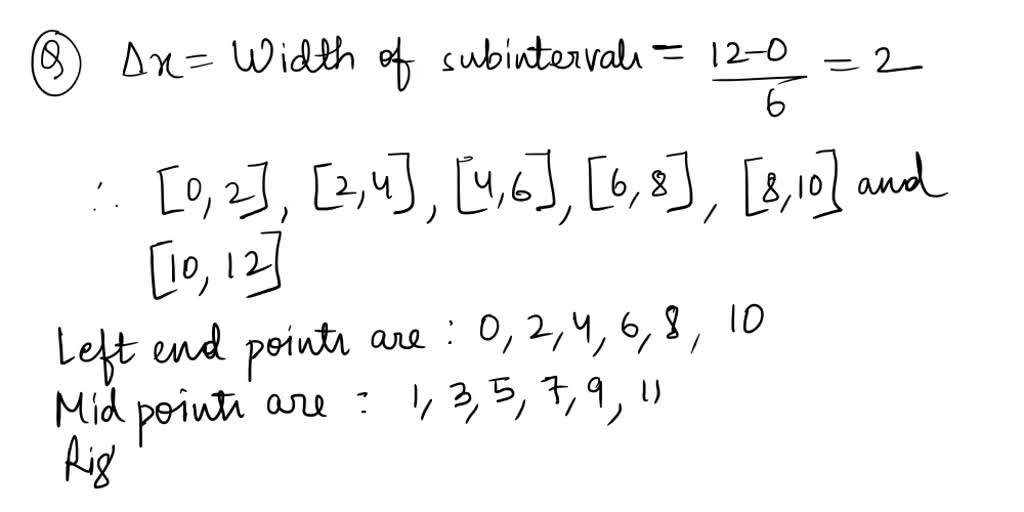 Q Δx = Width of subintervals = 12-0/6 = 2
∴ [0, 2], [2,4], [4,6], [6,8], [8,10] and
[10, 12]
Left end points are : 0, 2, 4, 6, 8, 10
Mid points are : 1, 3, 5, 7, 9, 11
Rig